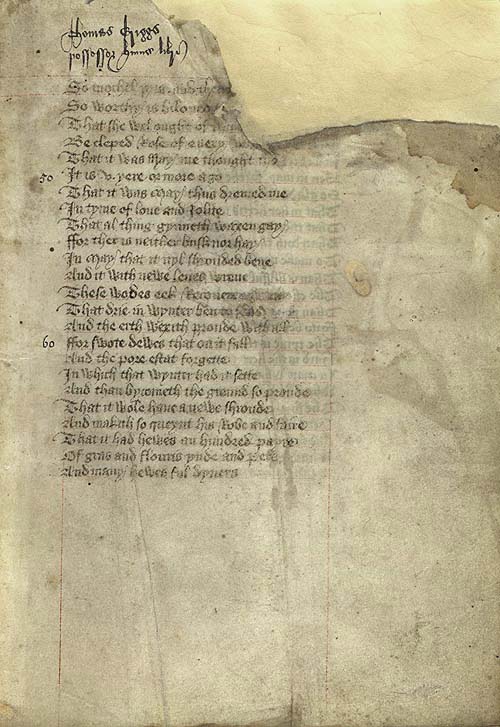 Thomas Griggs
possessor huius libri
So mochel pris and ther
So worthy is biloued
That she wel ought of
Be cleped Rose of euery
That it was May me thought tho
50 It is .v. yere or more ago
That it was May thus dremed me
In tyme of loue and Jolite
That al thing gynneth waxen gay
ffor ther is neither busk nor hay
In May that it nyl shrouded bene
And it with newe leues wrene
These wodes eek recoueren grene
That drie in wynter ben to
And the erth wexith proude withall
60 ffor swote dewes that on it fall
And the pore estat forgette
In which that wynter had it sette
And than bycometh the ground so proude
That it wole haue a newe shroude
And makith so queynt his Robe and faire
That it had hewes an hundred payre
Of gras and flouris ynde and Pers
And many hewes ful dyuers